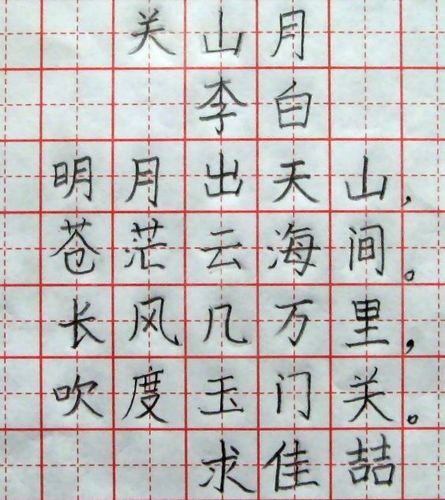 关山月
李白
明月出天山，
苍茫云海间。
长风几万里，
吹度玉门关。
求佳喆